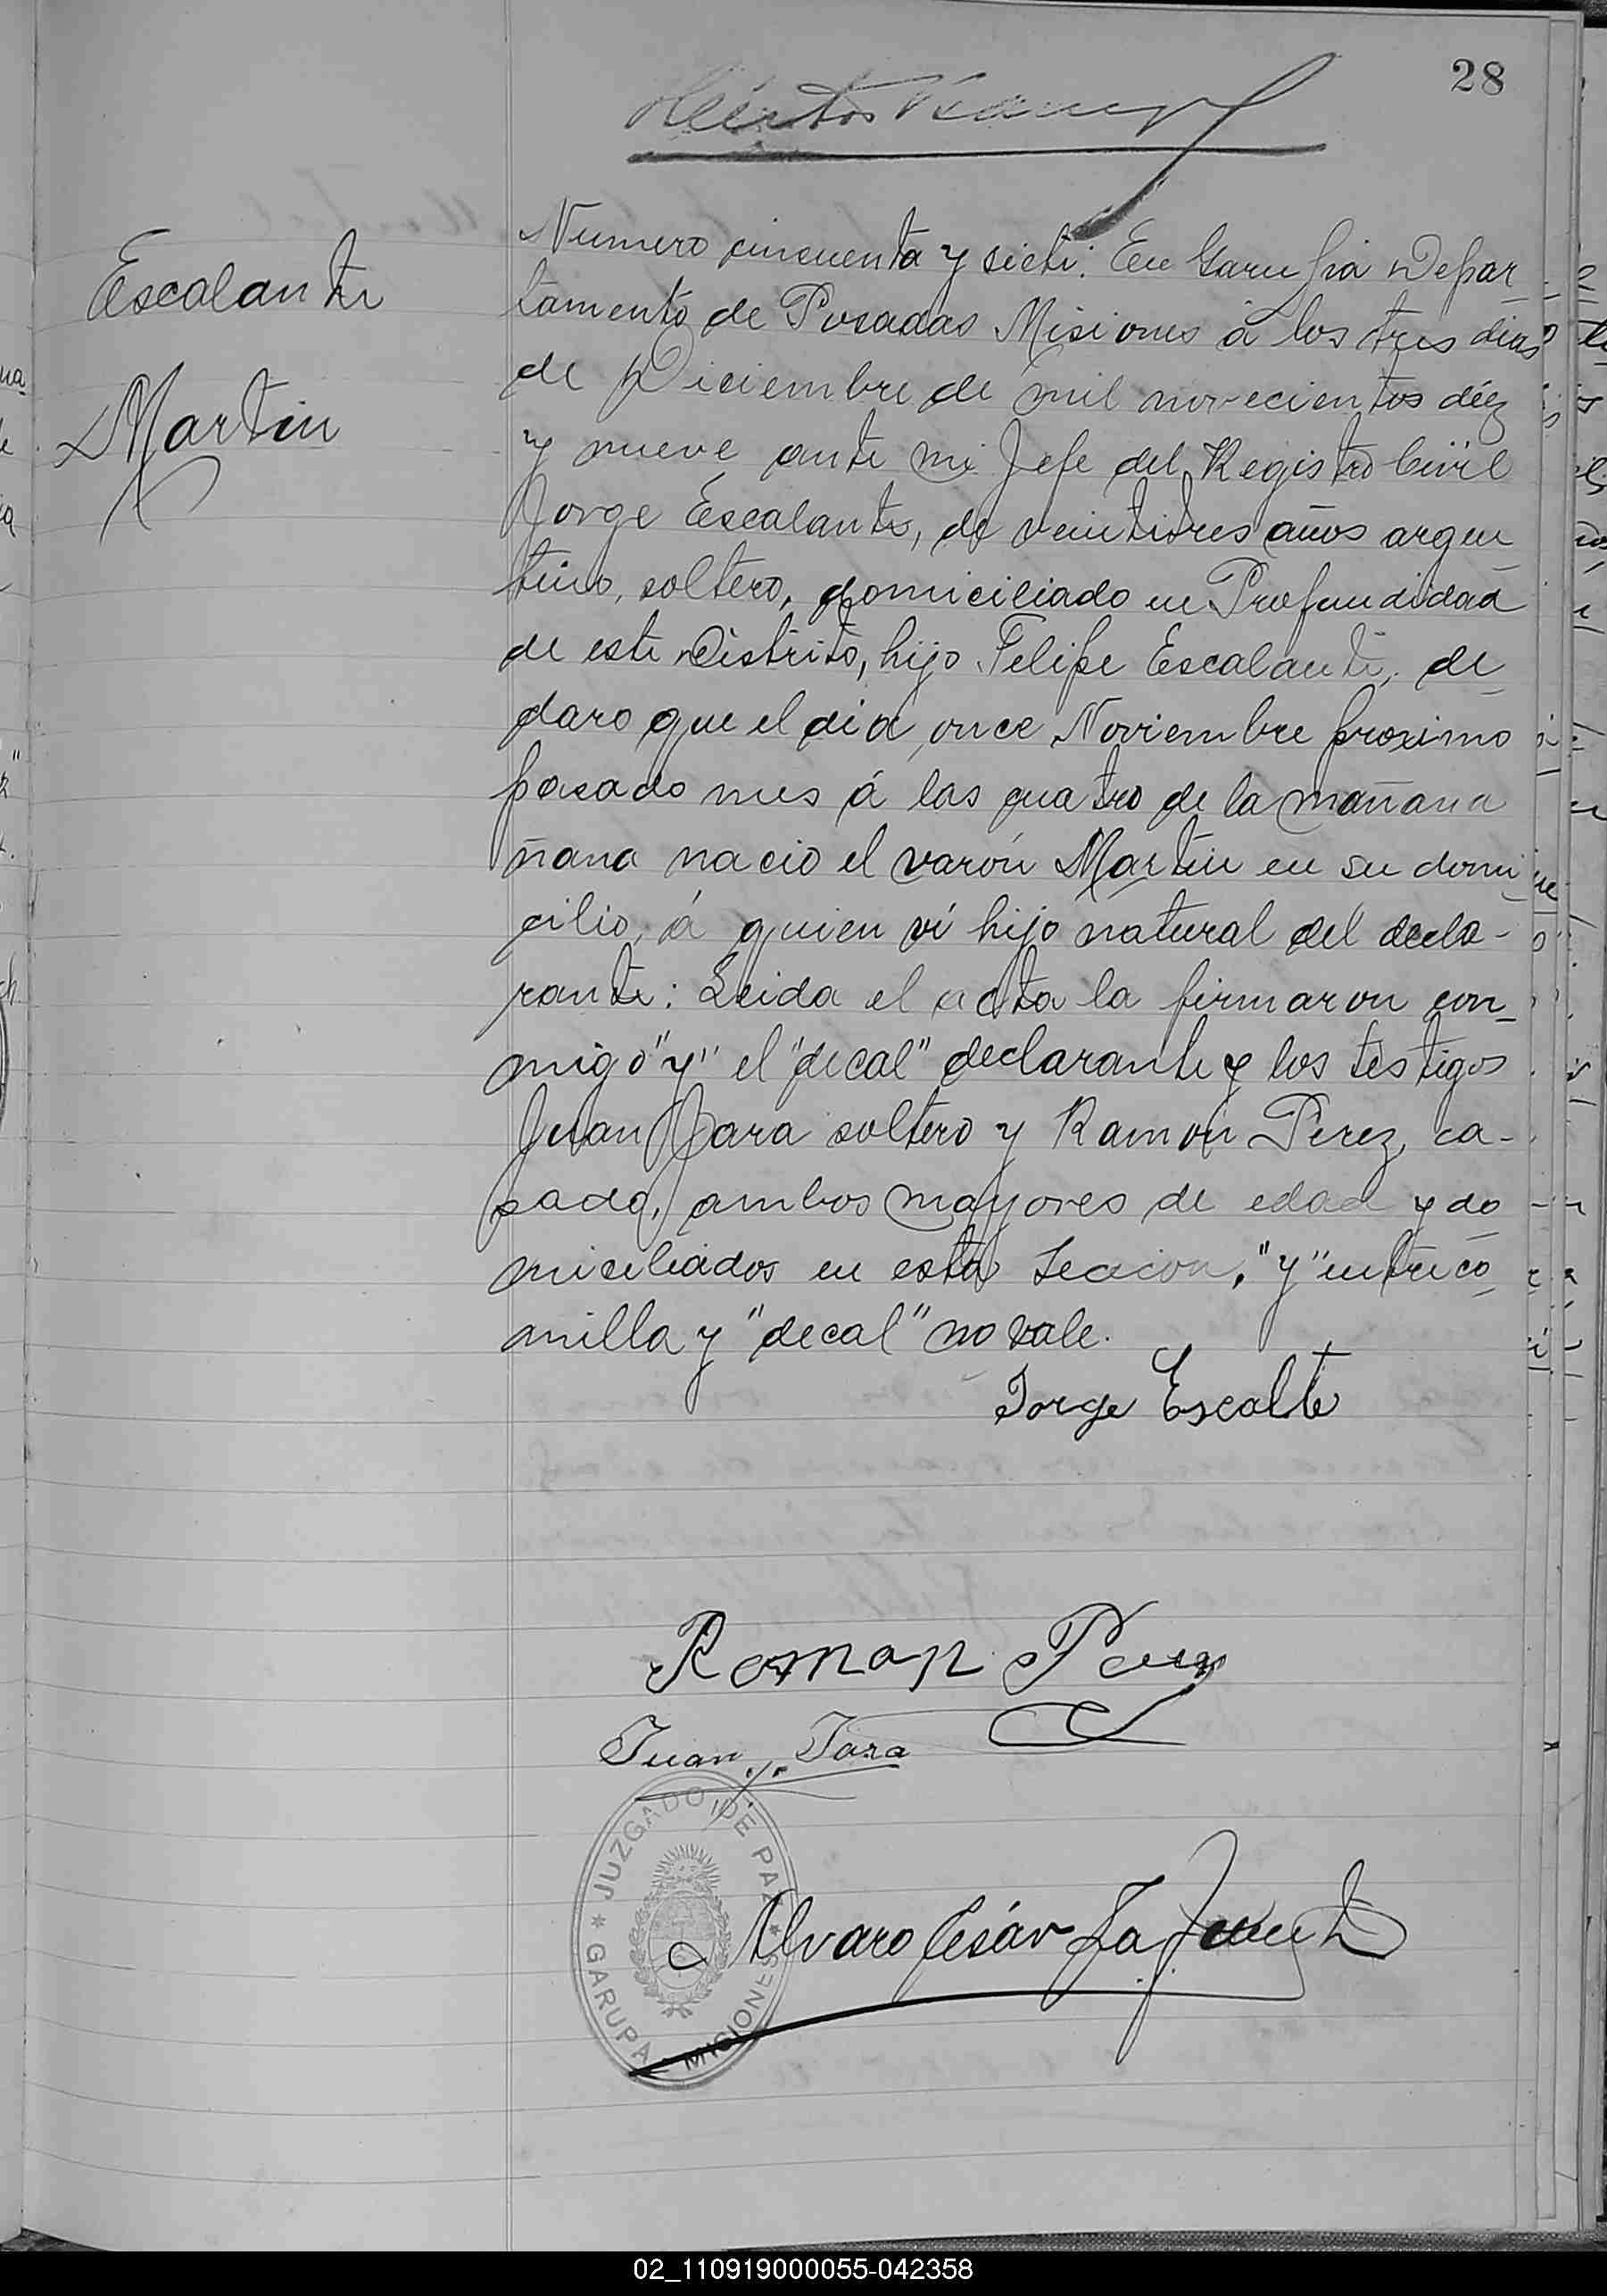 28
Numero cincuenta y siete. En Garupá Depar-
tamento de Posadas Misiones á los tres dias
de Diciembre de mil novecientos diéz
y nueve ante mi Jefe del Registro Civil
Jorge Escalante, de veintitres años argen-
tino, soltero, domiciliado en Profundidad
de este Distrito, hijo Felipe Escalante, de-
claro que el dia once Noviembre proximo
pasado mes á las cuatro de la mañana
ñana nacio el varón Martin en su domi-
cilio, á quien ví hijo natural del decla-
rante: Leida el acta la firmaron con-
migo "y" el "decal" declarante y los testigos
Juan Jara soltero y Ramón Perez, ca-
sado, ambos mayores de edad y do-
miciliados en esta Seccion, "y" entre co-
milla y "decal" no vale.
Escalante
Martin
Jorge Escalte
Roman Perez
Juan Jara
JUZGADO DE PAZ
* GARUPA - MISIONES *
Alvaro César Lafuente
02_110919000055-042358